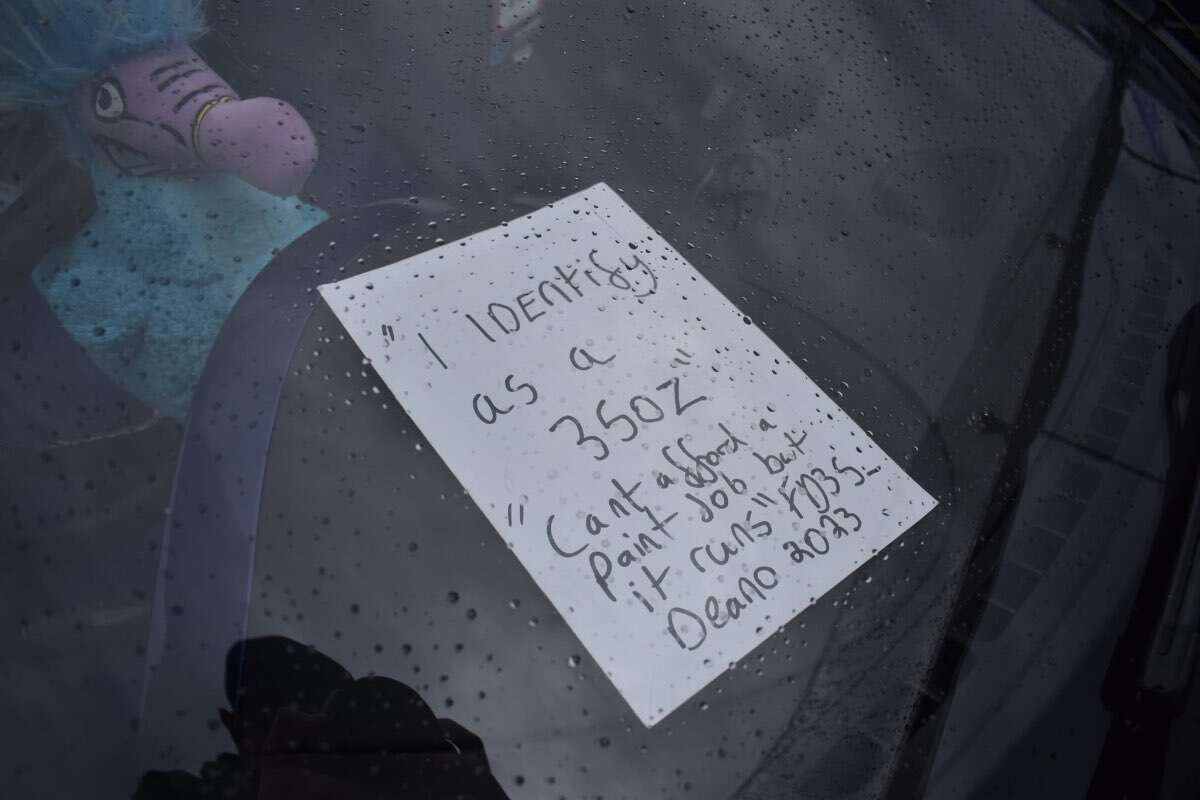 "I IDEntify
as a
350Z"
"Cant afford a
paint Job but
it runs" FD3S-
Deano 2023